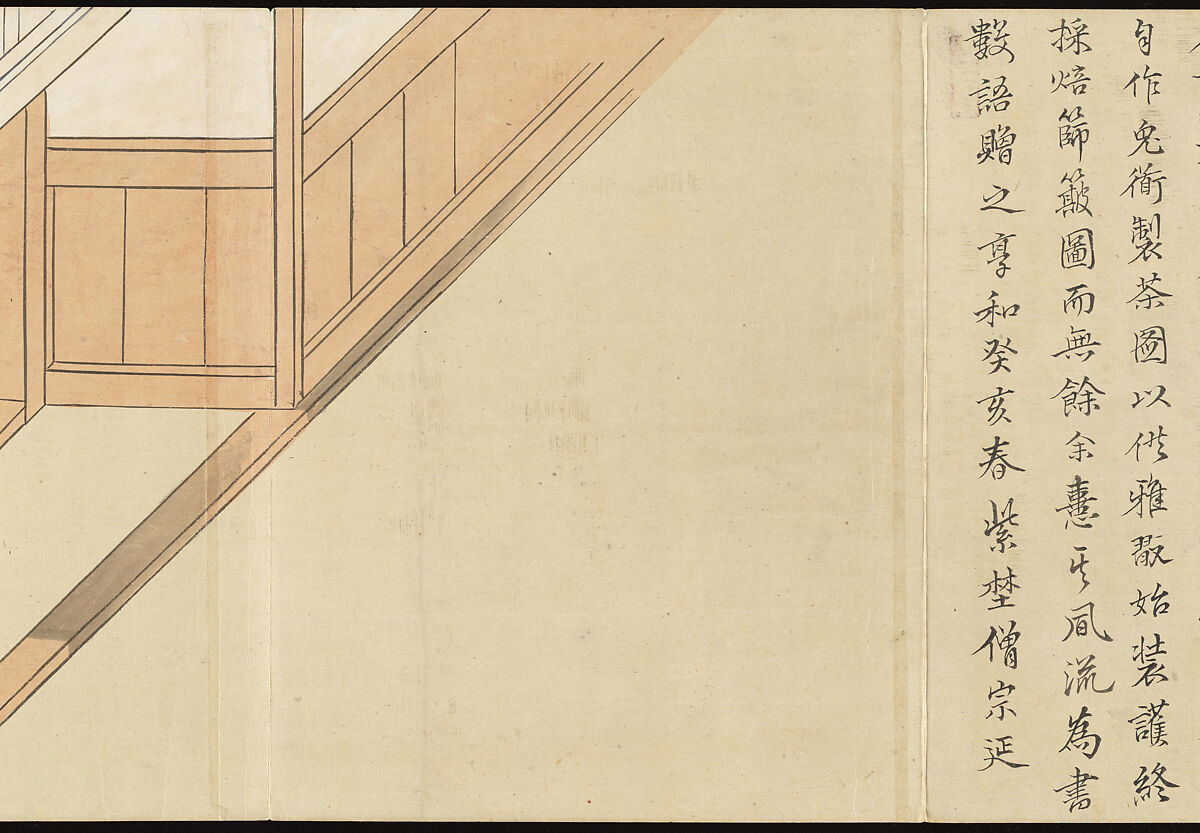 自作兔衜製茶圖以供雅翫始装護終
採焙篩簸圖而無餘余憙其風流為書
數語贈之享和癸亥春紫埜僧宗延